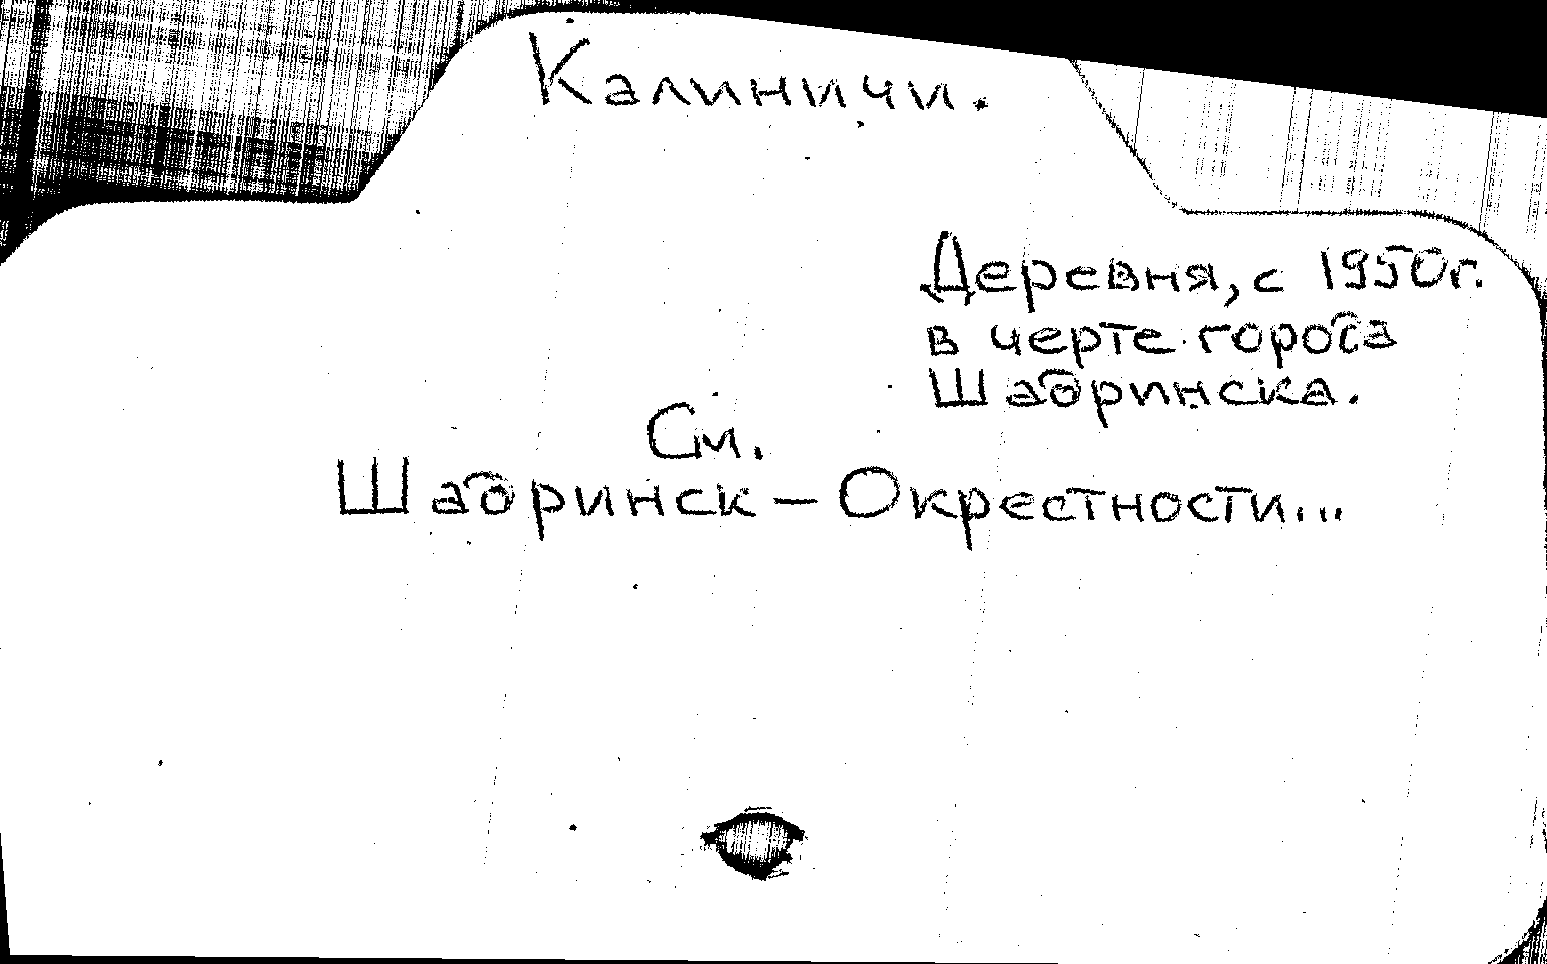 Калиничи.
Деревня, с 1950г.
в черте города
Шадринска.
См.
Шадринск – Окрестности...